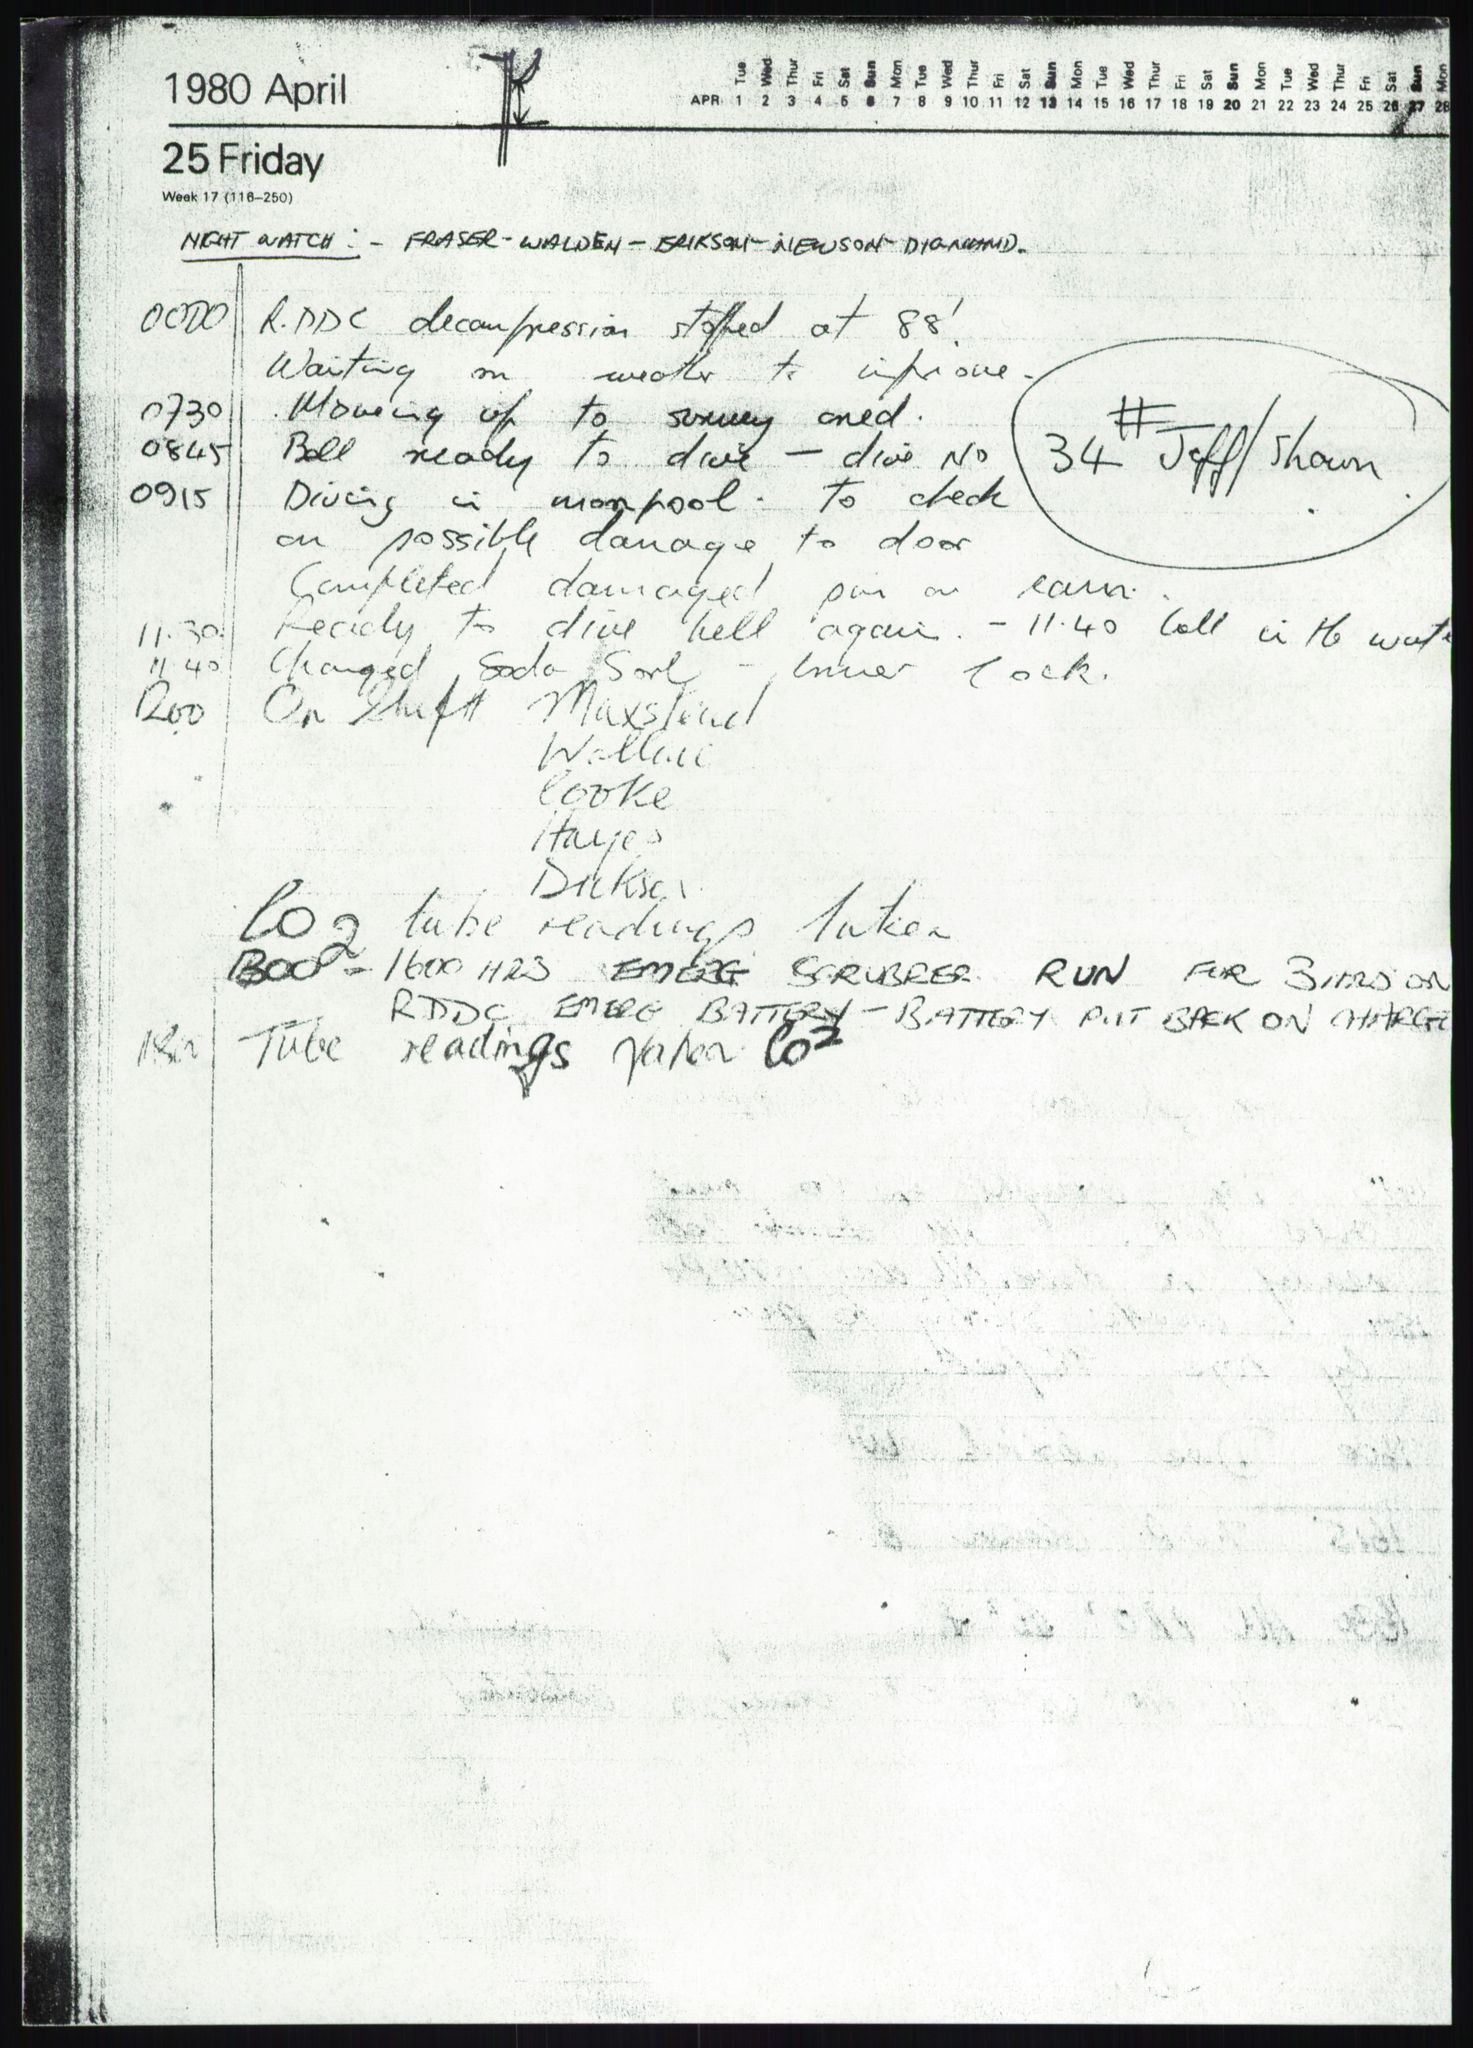 1980 April
APR Tue 1 Wed 2 Thur 3 Fri 4 Sat 5 Sun 6 Mon 7 Tue 8 Wed 9 Thur 10 Fri 11 Sat 12 Sun 13 Mon 14 Tue 15 Wed 16 Thur 17 Fri 18 Sat 19 Sun 20 Mon 21 Tue 22 Wed 23 Thur 24 Fri 25 Sat 26 Sun 27 Mon 28
25 Friday
Week 17 (116–250)
NIGHT WATCH :- FRASER - WALDEN - ERIKSON - NEWSON - DIAMOND.
0000 R.DDC decompression stopped at 88'
Waiting on weather to improve.
0730 Moveing up to survey area.
0845 Bell ready to dive - dive No 34 # Jeff / Shawn
0915 Diving in moonpool. to check
on possible damage to door
Completed damaged pin on
11.30 Ready to dive bell again. - 11.40 bell in the
11.40 Changed Soda Sorb - inner lock.
1200 On Shift Maxstead
Wallace
Cooke
Hayes
Dickson
CO2 tube readings taken
1300 - 1600 HRS EMERG SCRUBBER RUN FOR 3 HRS ON
RDDC EMERG BATTERY - BATTERY PUT BACK ON CHARGE
Tube readings taken CO2